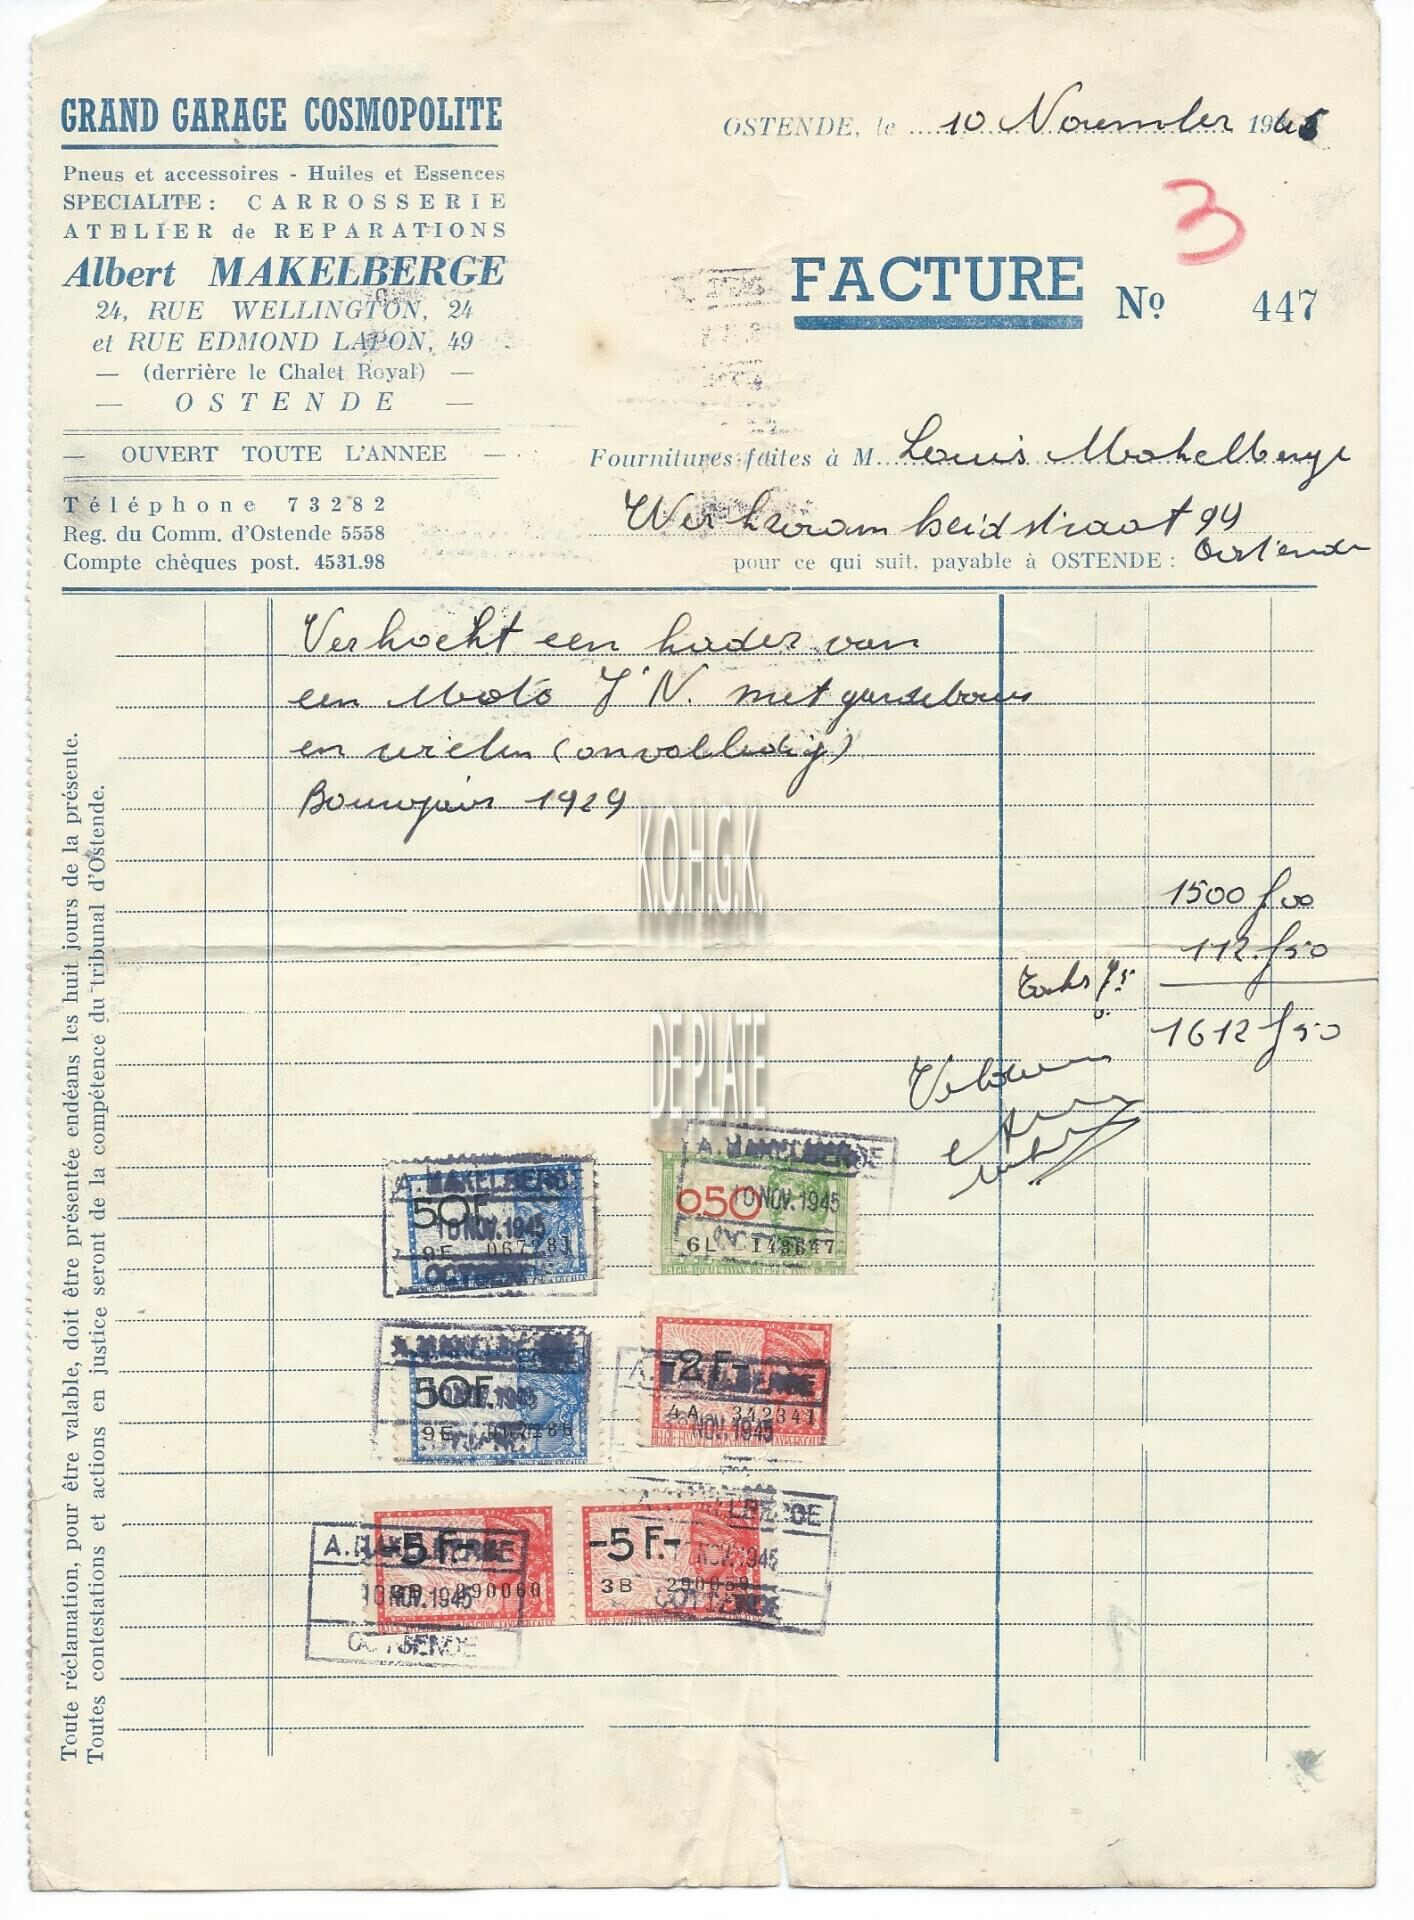 GRAND GARAGE COSMOPOLITE
Pneus et accessoires - Huiles et Essences
SPECIALITE : CARROSSERIE
ATELIER de REPARATIONS
Albert MAKELBERGE
24, RUE WELLINGTON, 24
et RUE EDMOND LAPON, 49
— (derrière le Chalet Royal) —
— OSTENDE —
— OUVERT TOUTE L'ANNEE —
Téléphone 73282
Reg. du Comm. d'Ostende 5558
Compte chèques post. 4531.98
OSTENDE, le 10 November 1945
3
FACTURE No 447
Fournitures faites à M. Louis Makelberge
Werkzaamheidstraat 94
Oostende
pour ce qui suit, payable à OSTENDE :
Verkocht een kader van
een Moto F N. met gardebous
en wielen (onvolledig)
Bouwjaar 1929
1500 f 00
Taks 7.5 112 f 50
1612 f 50
Voldaan
K.O.H.G.K.
DE PLATE
A. MAKELBERGE
50F
10 NOV. 1945
9E 067281
A. MAKELBERGE
0.50
10 NOV. 1945
6L 143647
A. MAKELBERGE
50F.
NOV. 1945
9E
A. MAKELBERGE
-2F.-
4A 342341
NOV. 1945
A. MAKELBERGE
-5F.-
10 NOV. 1945
290060
OOSTENDE
A. MAKELBERGE
-5F.-
NOV. 1945
3B 290059
OOSTENDE
Toute réclamation, pour être valable, doit être présentée endéans les huit jours de la présente.
Toutes contestations et actions en justice seront de la compétence du tribunal d'Ostende.